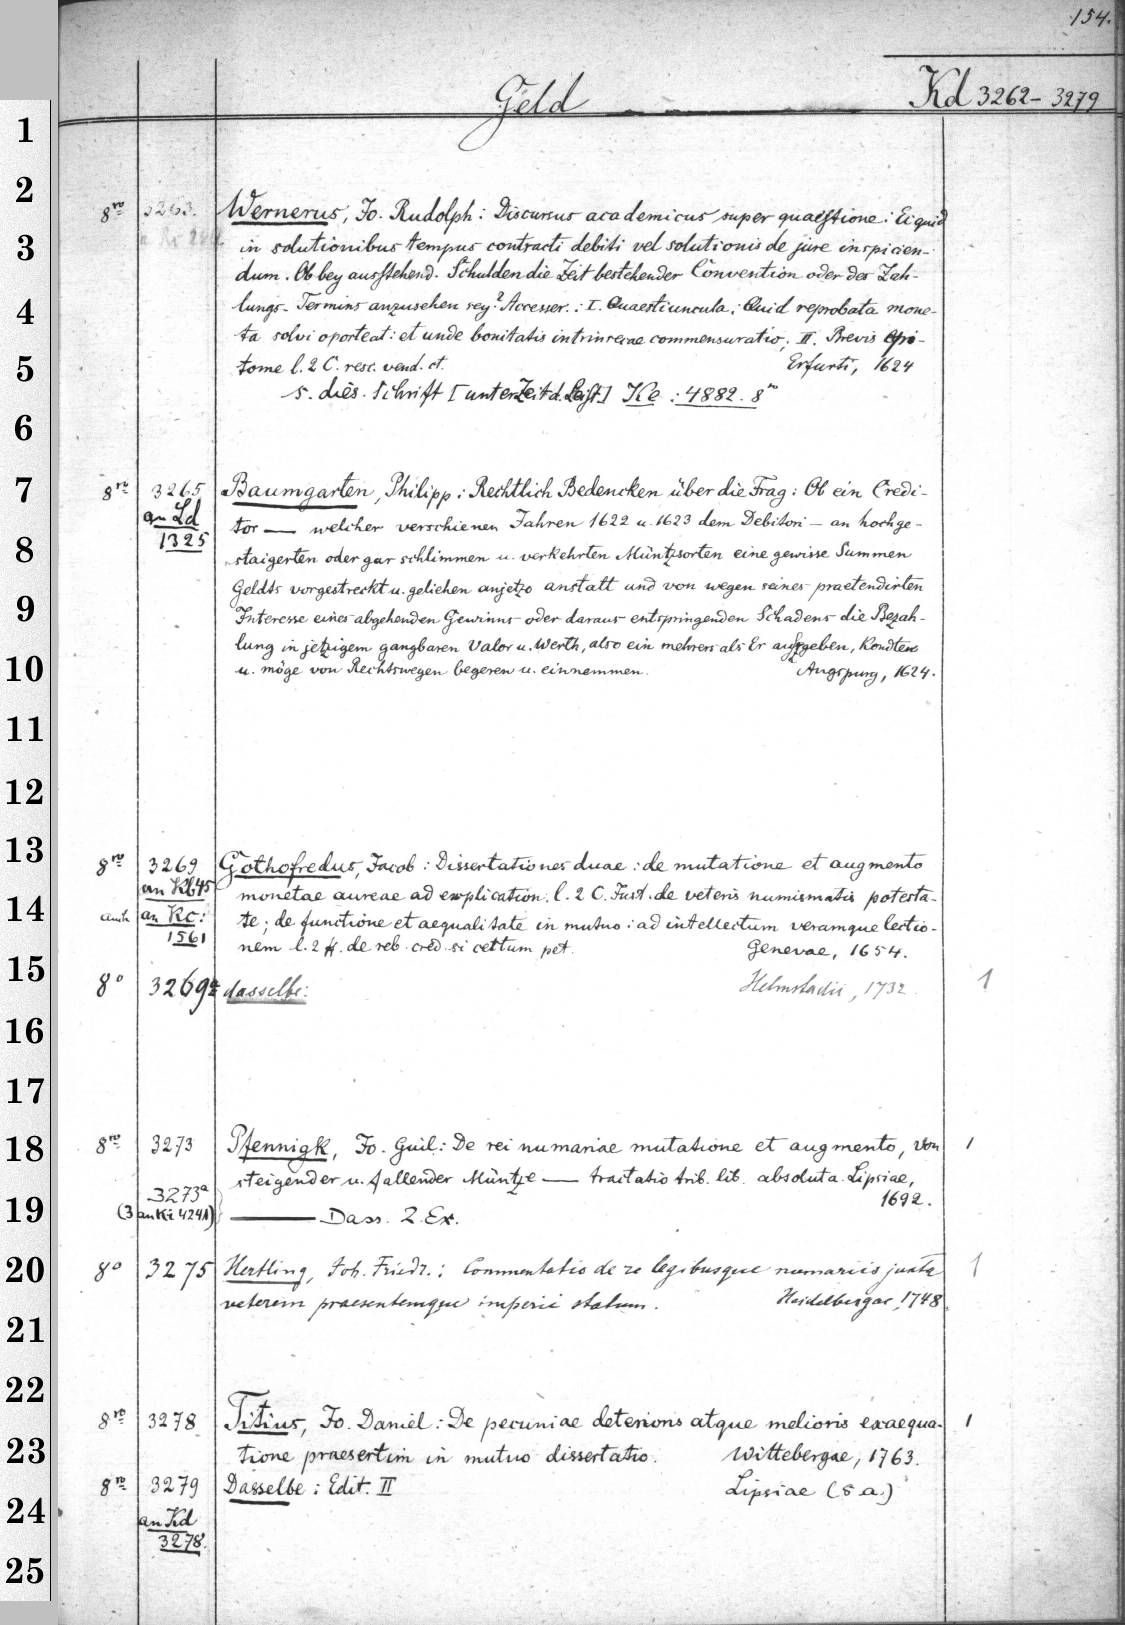 154.
Geld
Kd 3262-3279
1
2
8ro 3263. Wernerus, Jo. Rudolph: Discursus academicus super quaestione: Ei quid
3
in solutionibus tempus contracti debiti vel solutionis de jure inspicien-
dum. Ob bey ausstehend. Schulden die Zeit bestehender Convention oder der Zah-
4
lungs-Termins anzusehen sey? Accesser.: I. Quaestiuncula: Quid reprobata mone-
ta solvi oporteat: et unde bonitatis intrinsecae commensuratio; II. Brevis epi-
5
tome l. 2 C. resc. vend. et. Erfurti, 1624
s. dies. Schrift [unter Zeit d. Leist.] Ke: 4882. 8ro
6
7
8ro 3265 Baumgarten, Philipp: Rechtlich Bedencken über die Frag: Ob ein Credi-
an Ld
1325
tor — welcher verschienen Jahren 1622 u. 1623 dem Debitori — an hochge-
8
staigerten oder gar schlimmen u. verkehrten Müntzsorten eine gewisse Summen
Geldts vorgestreckt u. geliehen anjetzo anstatt und von wegen seines praetendirten
9
Interesse eines abgehenden Gewinns oder daraus entspringenden Schadens die Bezah-
lung in jetzigem gangbaren Valor u. Werth, also ein mehrers als Er aussgeben, Kondten
10
u. möge von Rechtswegen begeren u. einnemmen. Augspurg, 1624.
11
12
13
8ro 3269 Gothofredus, Jacob: Dissertationes duae: de mutatione et augmento
an Kb 45
monetae aureae ad explication. l. 2 C. Just. de veteris numismatis potesta-
14
an Kc:
1561
te; de functione et aequalitate in mutuo: ad intellectum veramque lectio-
nem l. 2 ff. de reb. cred. si certum pet. Genevae, 1654.
15
8o 3269a dasselbe: Helmstadii, 1732. 1
16
17
18
8ro 3273 Pfennigk, Jo. Guil: De rei numariae mutatione et augmento, von 1
steigender u. fallender Müntze — tractatio trib. lib. absoluta. Lipsiae,
1692.
3273a
19
(3 an Ki 4241) — Dass. 2. Ex.
20
8o 3275 Hertling, Joh. Friedr.: Commentatio de re legibusque numariis juxta 1
veterem praesentemque imperii statum. Heidelbergae, 1748.
21
22
8ro 3278 Titius, Jo. Daniel: De pecuniae deterioris atque melioris exaequa- 1
23
tione praesertim in mutuo dissertatio. Wittebergae, 1763.
8ro 3279 Dasselbe: Edit. II Lipsiae (s. a.)
24
an Kd
3278.
25